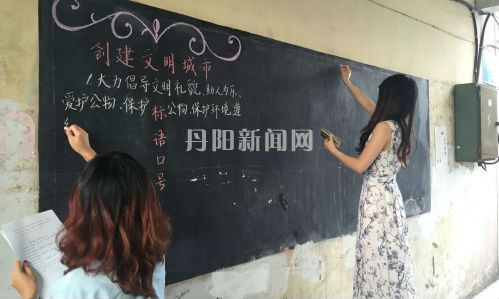 创建文明城市
1大力倡导文明礼貌、助人为乐、
爱护公物、保护 公物、保护环境遵
标语口号
丹阳新闻网